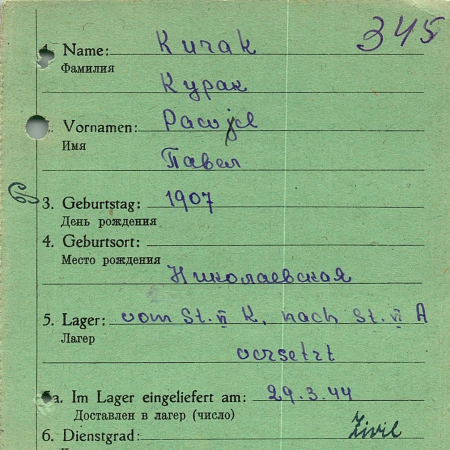 345
1. Name: Kurak
Фамилия
Курак
2. Vornamen: Pawel
Имя
Павел
3. Geburtstag: 1907
День рождения
4. Geburtsort:
Место рождения
Николаевская
5. Lager: vom St. VI K, nach St. VI A
Лагер
versetzt
5a. Im Lager eingeliefert am: 29.3.44
Доставлен в лагер (число)
6. Dienstgrad: Zivil